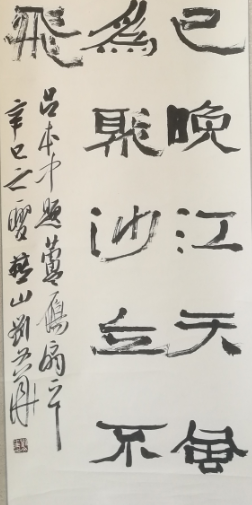 已晚江天風
為聚沙立不
飛
吕本中題蘆雁扇二首
辛巳之夏楚山劉